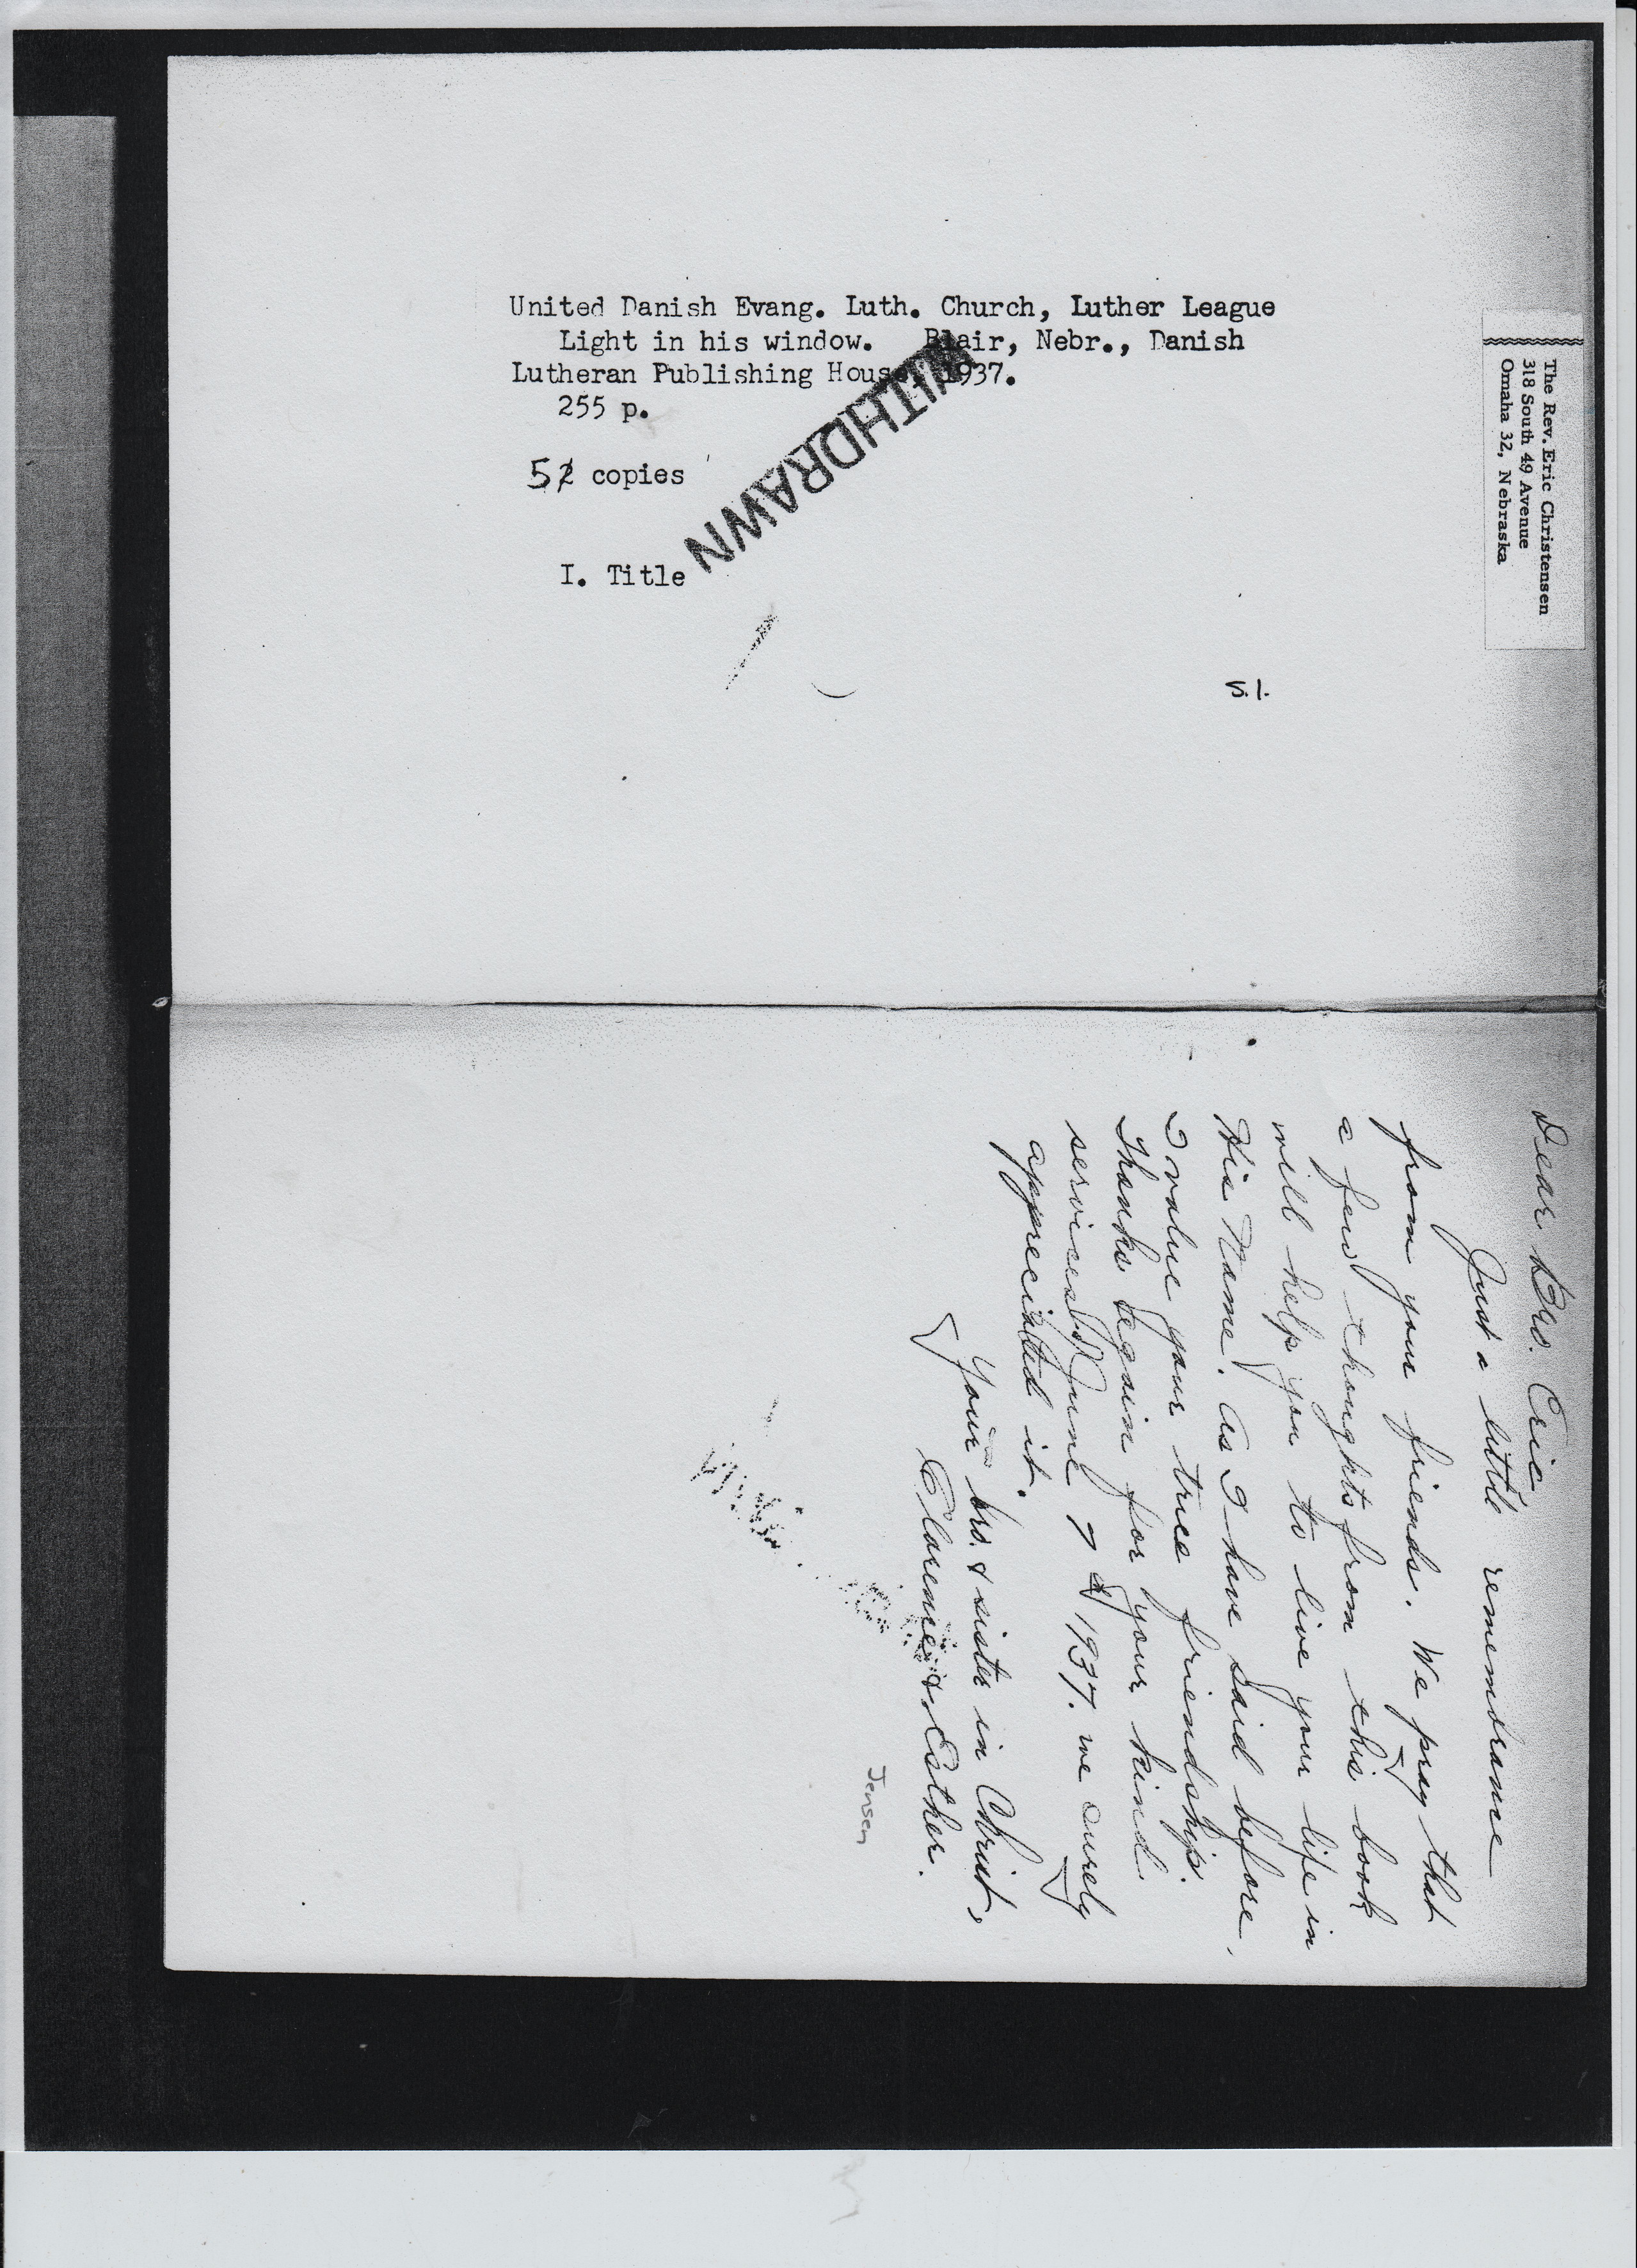 United Danish Evang. Luth. Church, Luther League
Light in his window. Blair, Nebr., Danish
Lutheran Publishing House, 1937.
255 p.
52 copies
I. Title
WITHDRAWN
s.l.
The Rev. Eric Christensen
318 South 49 Avenue
Omaha 32, Nebraska
Dear Bro. Eric
Just a little remembrance
from your friends. We pray that
a few thoughts from this book
will help you to live your life in
His Name. As I have said before,
I value your true friendship.
Thanks again for your kind
services June 7 1937. we surely
appreciated it.
Your bro. & sister in Christ,
Clarence & Esther.
Jensen